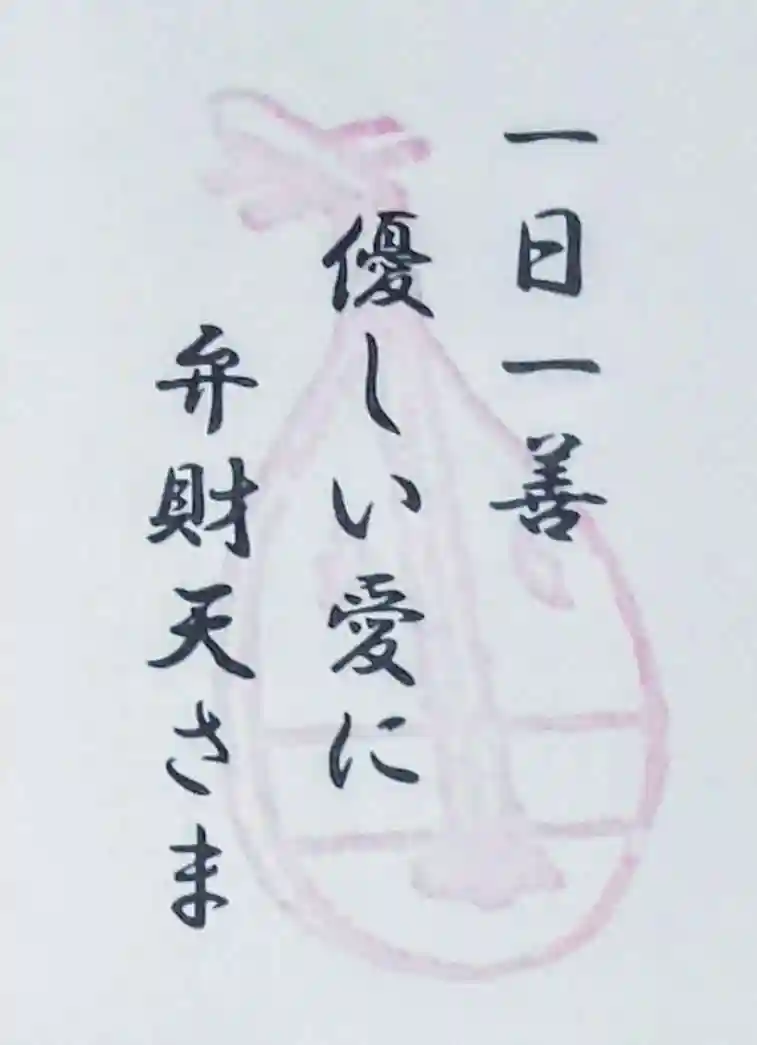 一日一善
優しい愛に
弁財天さま